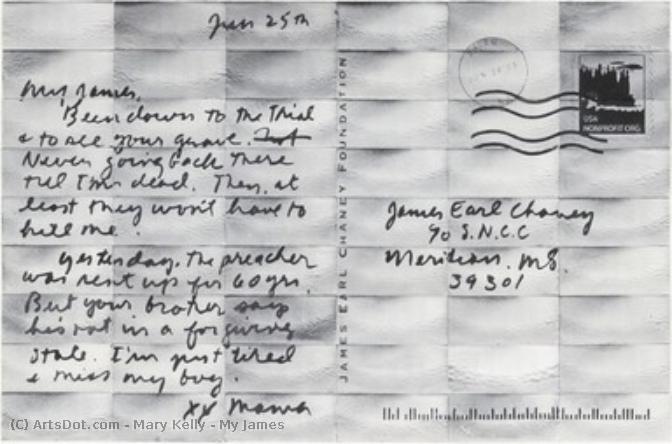 Jun 25th
My James,
Been down to the trial
& to see your grave.
Never going back there
till I'm dead. Then, at
least they won't have to
kill me.
Yesterday, the preacher
was sent up for 60 yrs.
But your brother says
he's not in a forgiving
state. I'm just tired
& miss my boy.
xx Mama
JAMES EARL CHANEY FOUNDATION
USA
NONPROFIT ORG.
James Earl Chaney
% S.N.C.C
Meridian, MS.
39301
(C) ArtsDot.com - Mary Kelly - My James